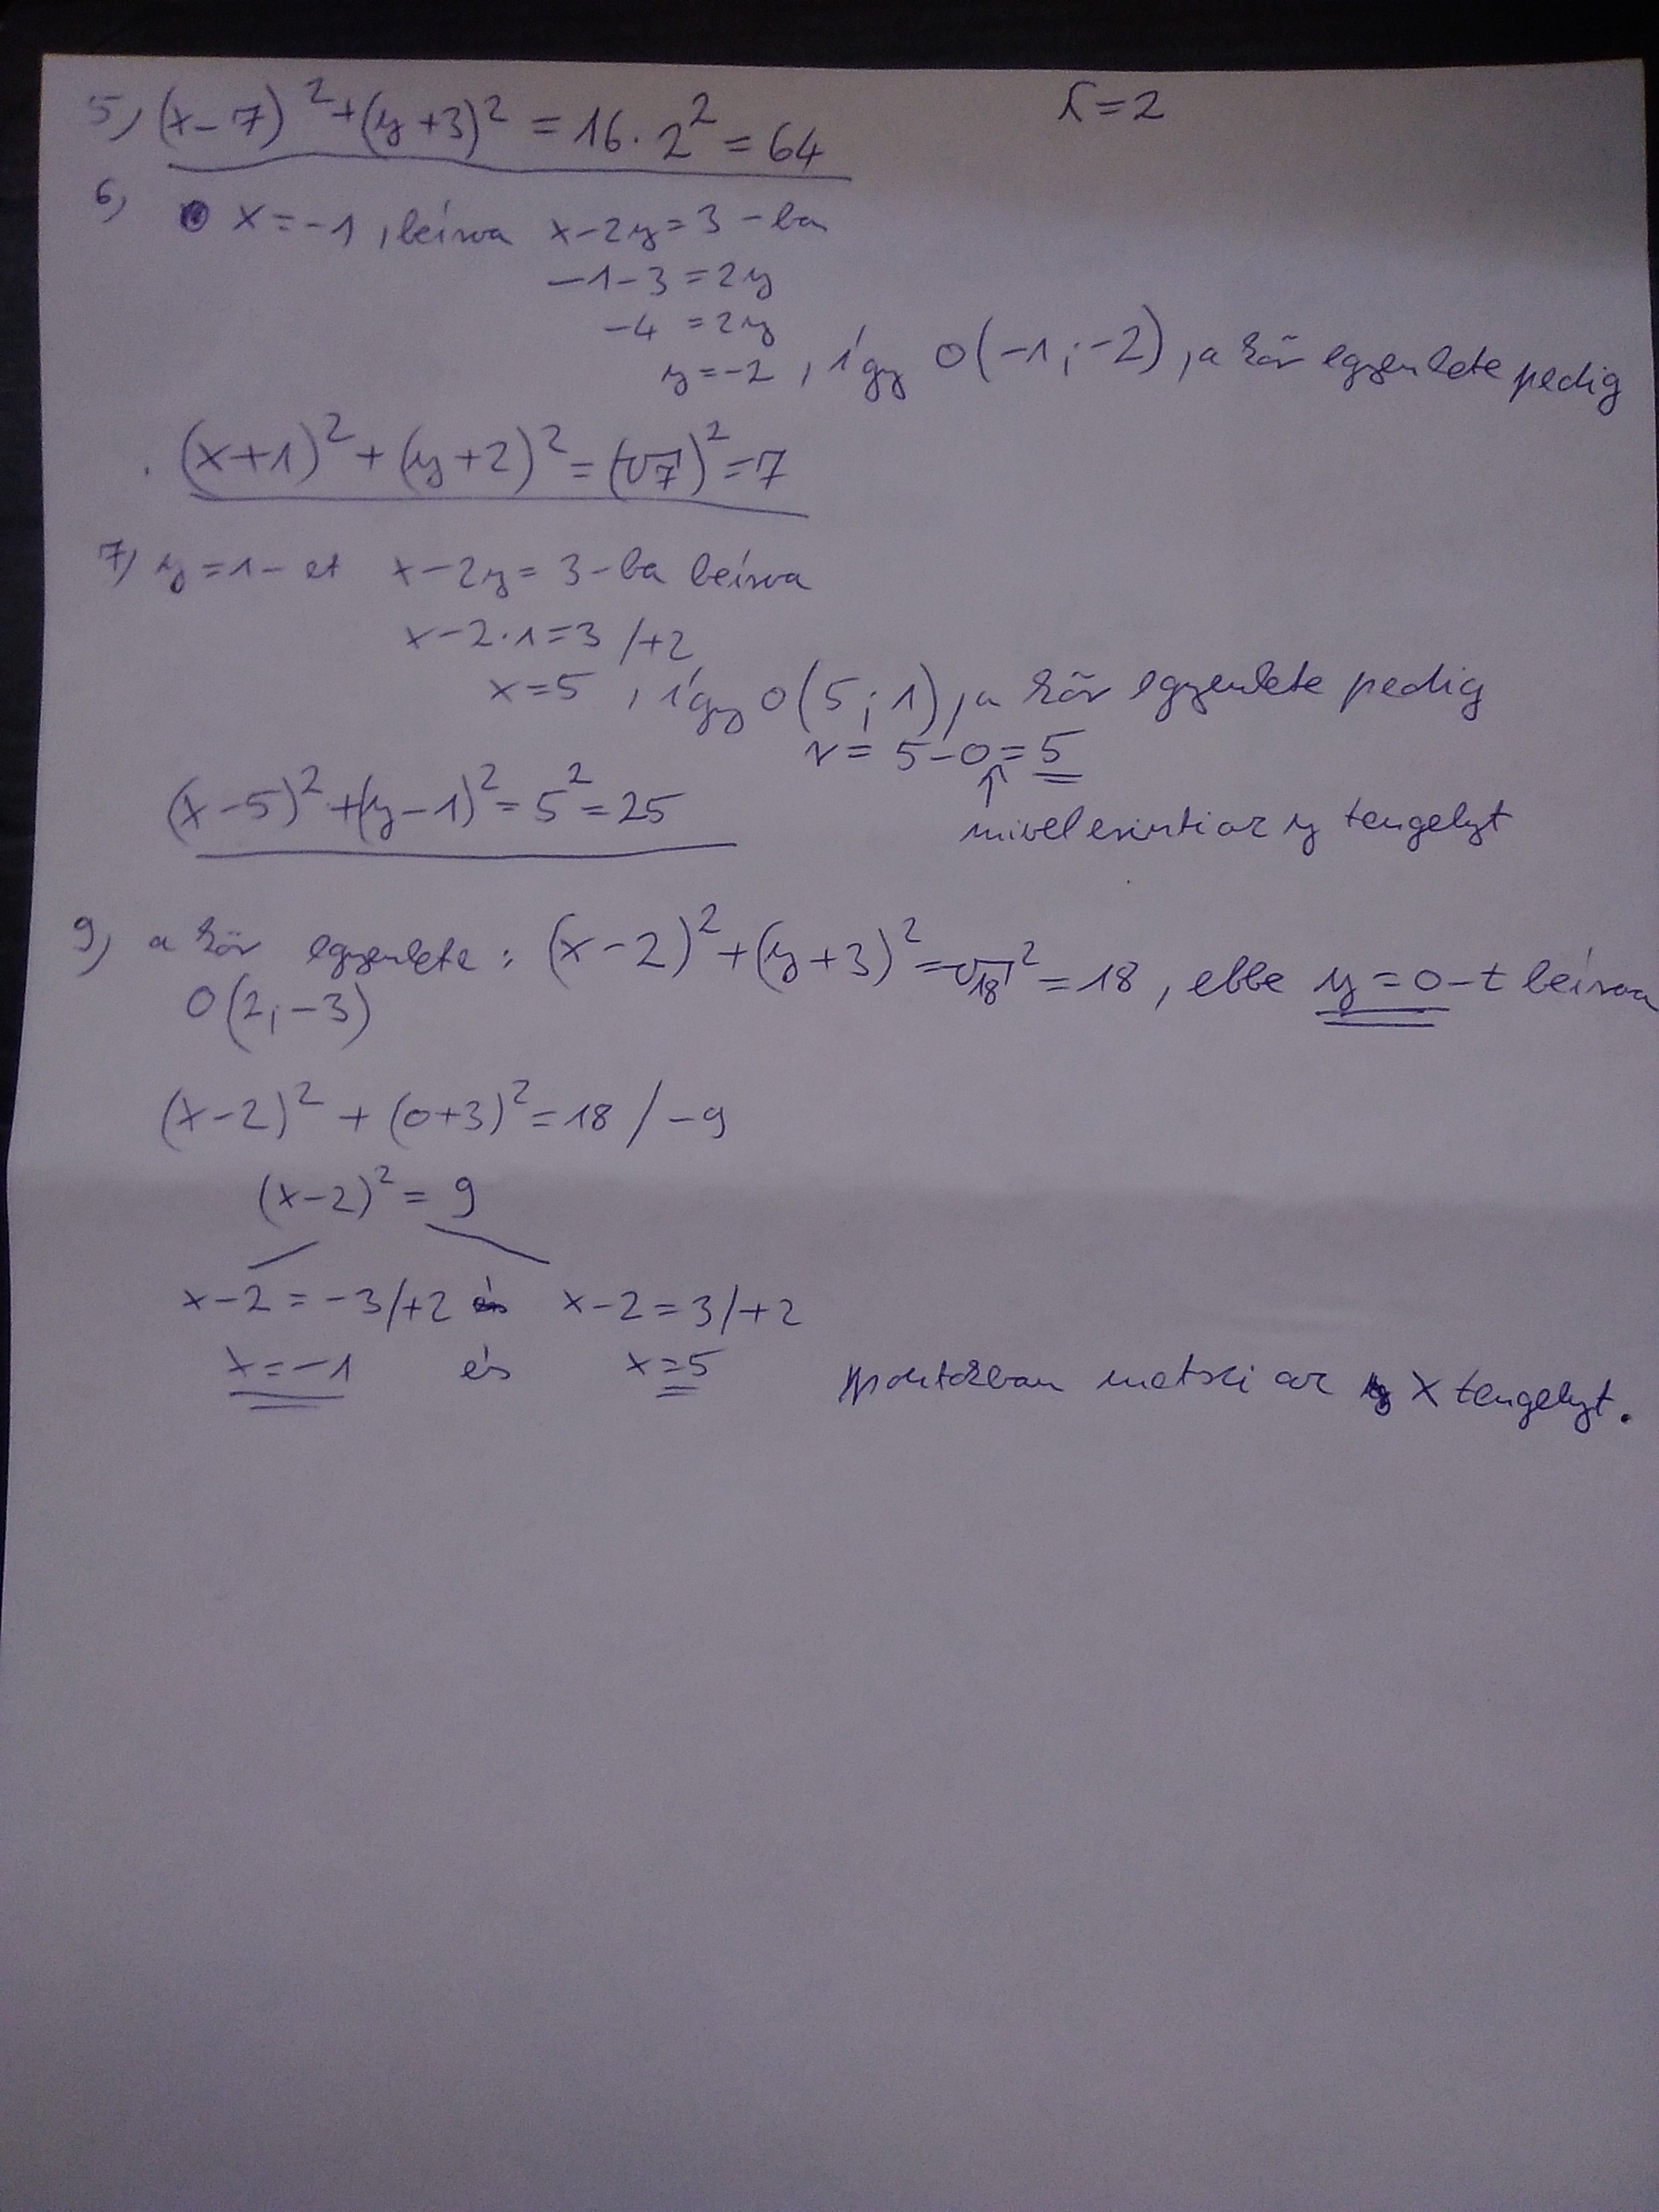 5, (x-7)² + (y+3)² = 16·2² = 64 λ=2
6, x=-1, beírva x-2y=3-ba
-1-3=2y
-4 =2y
y=-2, így O(-1;-2), a kör egyenlete pedig
(x+1)² + (y+2)² = (√7)² = 7
7, y=1-et x-2y=3-ba beírva
x-2·1=3 /+2
x=5, így O(5;1), a kör egyenlete pedig
r= 5-0=5
↑
(x-5)² + (y-1)² = 5² = 25
mivel érinti az y tengelyt
9, a kör egyenlete: (x-2)² + (y+3)² = √18² = 18, ebbe y=0-t beírva
O(2;-3)
(x-2)² + (0+3)² = 18 / -9
(x-2)² = 9
x-2=-3/+2 és x-2=3/+2
x=-1 és x=5 pontokban metszi az X tengelyt.